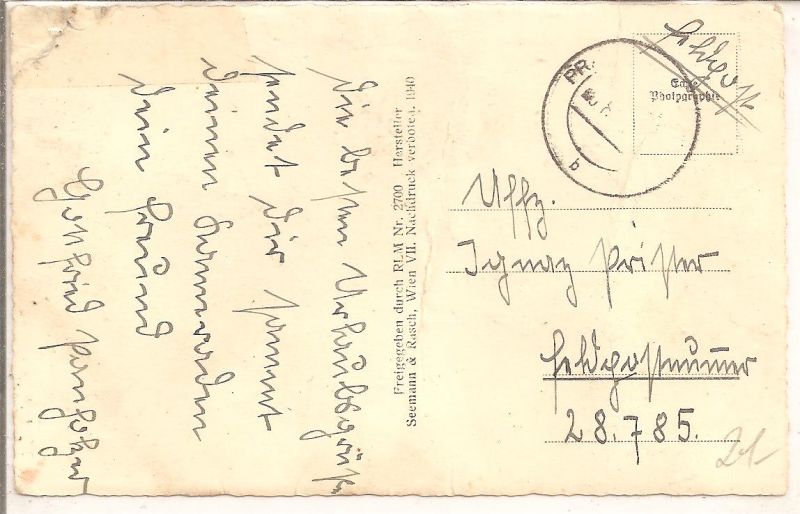 Die besten Urlaubsgrüße
sendet dir samt
deinen Kameraden
dein Freund
Gottfried
Freigegeben durch RLM Nr. 2700 Hersteller
Seemann & Rasch, Wien VII. Nachdruck verboten, 1940
Feldpost
Echte
Photographie
PR
b
Uffz.
Ignaz Prister
Feldpostnummer
28.785.